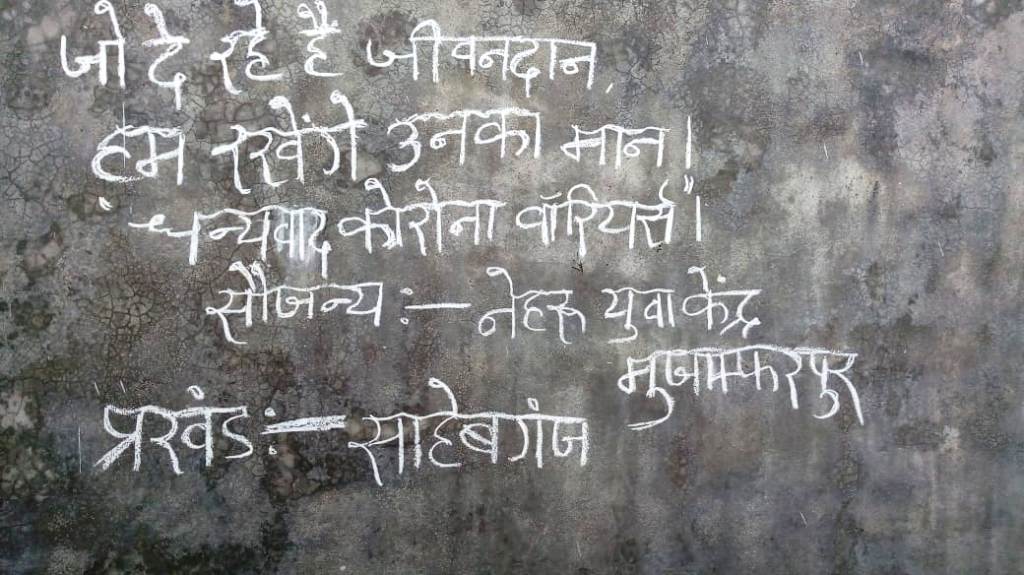 जो दे रहे है जीवनदान,
हम रखेंगे उनका मान।
"धन्यवाद कोरोना वॉरियर्स"।
सौजन्य :- नेहरू युवा केंद्र
मुजफ्फरपुर
प्रखंड :- साहेबगंज